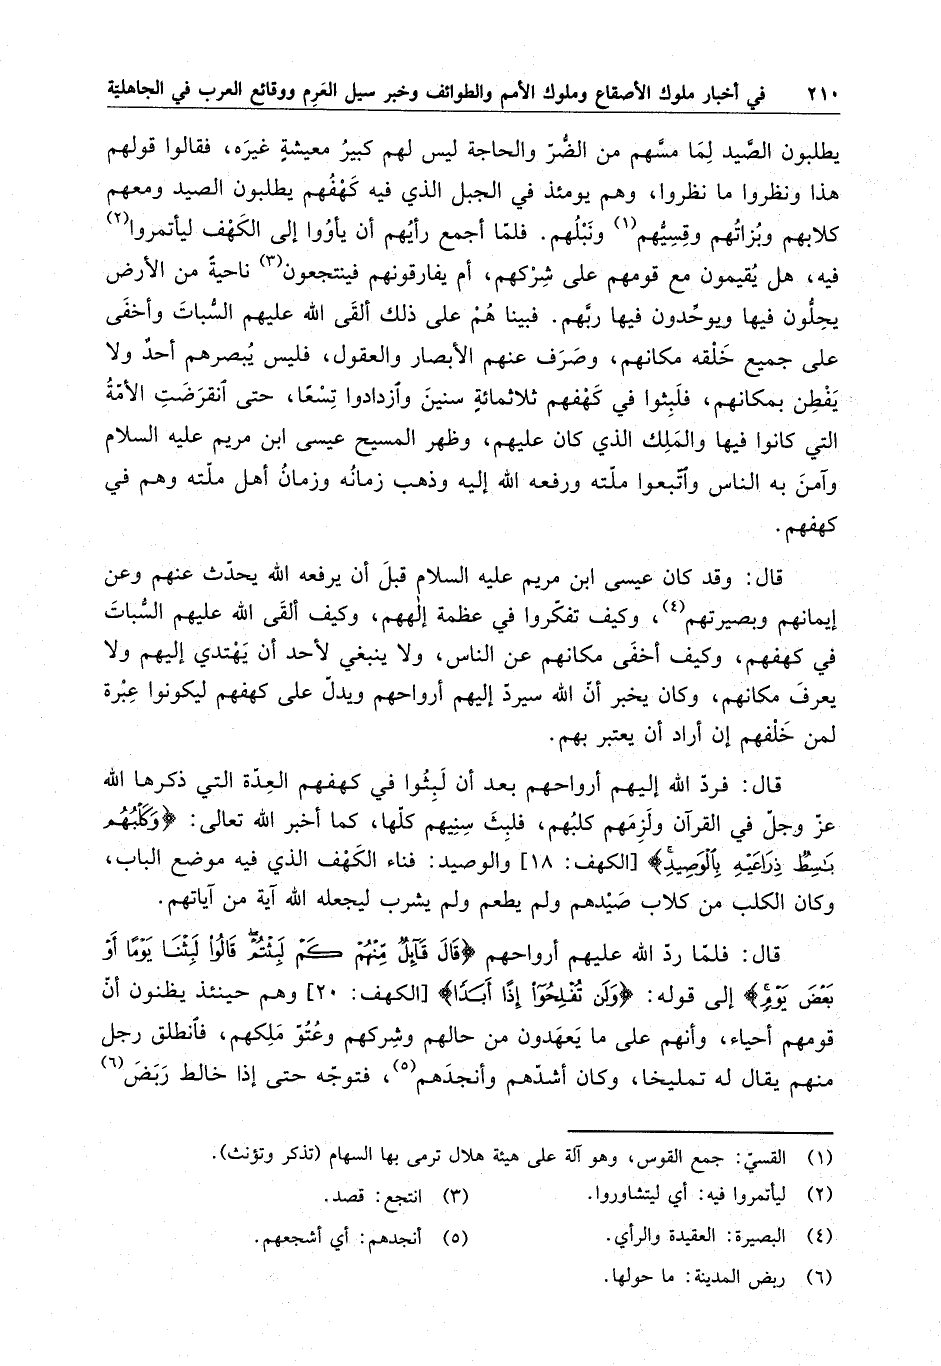 ٢١٠ في أخبار ملوك الأصقاع وملوك الأمم والطوائف وخبر سيل العَرِم ووقائع العرب في الجاهليّة
يطلبون الصَّيد لِمَا مسَّهم من الضُّرّ والحاجة ليس لهم كبيرُ معيشةٍ غيرَه، فقالوا قولهم
هذا ونظروا ما نظروا، وهم يومئذ في الجبل الذي فيه كَهْفُهم يطلبون الصيد ومعهم
كلابهم وبُزاتُهم وقِسِيُّهم(١) ونَبْلُهم. فلمّا أجمع رأيُهم أن يأوُوا إلى الكَهْف ليأتمروا(٢)
فيه، هل يُقيمون مع قومهم على شِرْكهم، أم يفارقونهم فينتجعون(٣) ناحيةً من الأرض
يحلُّون فيها ويوحِّدون فيها ربَّهم. فبينا هُمْ على ذلك ألقَى الله عليهم السُّباتَ وأخفَى
على جميع خَلْقه مكانهم، وصَرَف عنهم الأبصار والعقول، فليس يُبصرهم أحدٌ ولا
يَفْطِن بمكانهم، فلَبِثوا في كَهْفهم ثلاثمائةٍ سنينَ وٱزدادوا تِسْعًا، حتى ٱنقرَضَتِ الأمّةُ
التي كانوا فيها والمَلِك الذي كان عليهم، وظهر المسيح عيسى ابن مريم عليه السلام
وآمنَ به الناس وٱتّبعوا ملّته ورفعه الله إليه وذهب زمانُه وزمانُ أهل ملّته وهم في
كهفهم.
قال: وقد كان عيسى ابن مريم عليه السلام قبلَ أن يرفعه الله يحدّث عنهم وعن
إيمانهم وبصيرتهم(٤)، وكيف تفكّروا في عظمة إلٰههم، وكيف ألقَى الله عليهم السُّباتَ
في كهفهم، وكيف أخفَى مكانهم عن الناس، ولا ينبغي لأحد أن يَهْتدي إليهم ولا
يعرفَ مكانهم، وكان يخبر أنّ الله سيردّ إليهم أرواحهم ويدلّ على كهفهم ليكونوا عِبْرة
لمن خَلْفهم إن أراد أن يعتبر بهم.
قال: فردّ الله إليهم أرواحهم بعد أن لَبِثُوا في كهفهم العِدّة التي ذكرها الله
عزّ وجلّ في القرآن ولَزِمَهم كلبُهم، فلبِثَ سِنِيهم كلّها، كما أخبر الله تعالى: ﴿وَكَلْبُهُم
بَٰسِطٌ ذِرَاعَيْهِ بِٱلْوَصِيدِۚ﴾ [الكهف: ١٨] والوصيد: فناء الكَهْف الذي فيه موضع الباب،
وكان الكلب من كلاب صَيْدهم ولم يطعم ولم يشرب ليجعله الله آية من آياتهم.
قال: فلمّا ردّ الله عليهم أرواحهم ﴿قَالَ قَآئِلٌ مِّنْهُمْ كَمْ لَبِثْتُمْۖ قَالُوا۟ لَبِثْنَا يَوْمًا أَوْ
بَعْضَ يَوْمٍۚ﴾ إلى قوله: ﴿وَلَن تُفْلِحُوٓا۟ إِذًا أَبَدًا﴾ [الكهف: ٢٠] وهم حينئذ يظنون أنّ
قومهم أحياء، وأنهم على ما يَعهَدون من حالهم وشِركهم وعُتُوّ مَلِكهم، فٱنطلق رجل
منهم يقال له تمليخا، وكان أشدّهم وأنجدَهم(٥)، فتوجّه حتى إذا خالط رَبَضَ(٦)
(١) القسيّ: جمع القوس، وهو آلة على هيئة هلال ترمى بها السهام (تذكر وتؤنث).
(٢) ليأتمروا فيه: أي ليتشاوروا. (٣) انتجع: قصد.
(٤) البصيرة: العقيدة والرأي. (٥) أنجدهم: أي أشجعهم.
(٦) ربض المدينة: ما حولها.